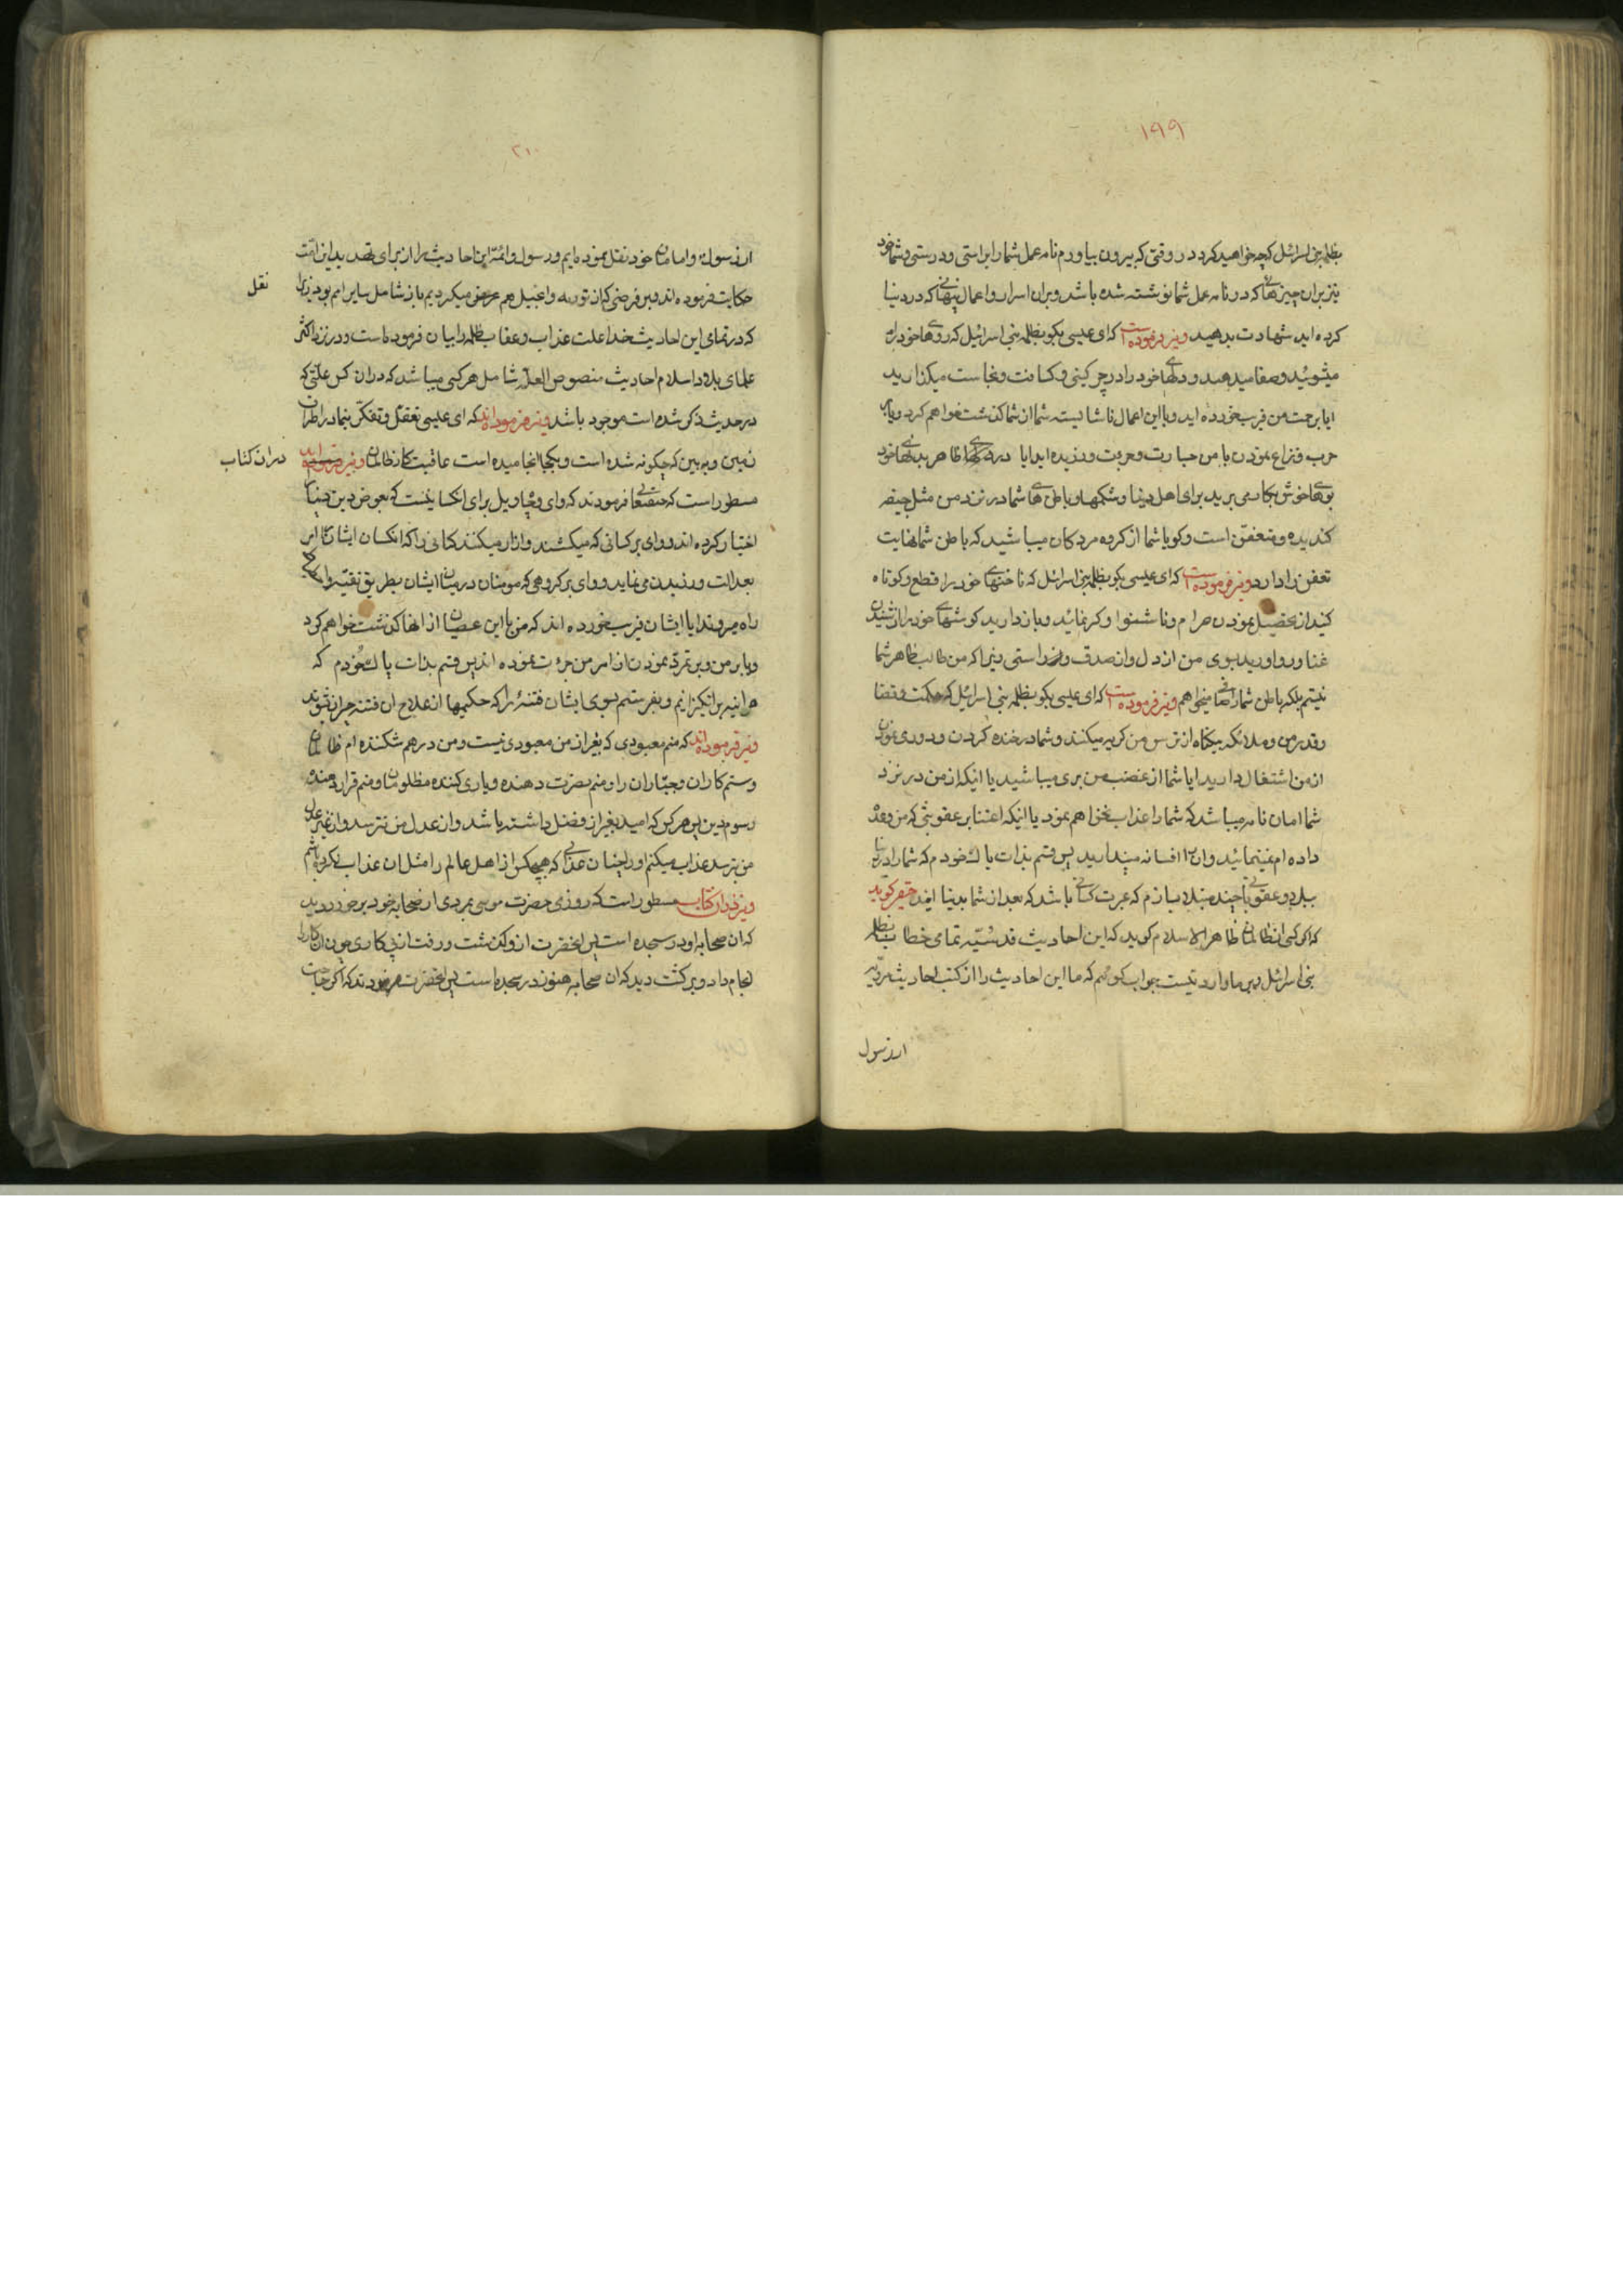 ۱۹۹
بظلمه بنی اسرائیل که چه خواهید کرد در وقتی که بیرون بیاورم نامه عمل شما را براستی و درستی و شما خود
نیز بران چیزهائی که در نامه عمل شما نوشته شده باشد و بران اسرار و اعمال پنهانی که در دنیا
کرده اید شهادت بدهید و نیز فرموده است که ای عیسی بکو بظلمه بنی اسرائیل که روهای خود را
میشوئید و صفا میدهید و دلهای خود را در چرکینی و کثافت و نجاست میکذارید
ایا برحمت من فریب خورده اید و با این اعمال ناشایسته شما از شما کذشت خواهم کرد و یا بر
حرب و نزاع نمودن با من جسارت و جرئت ورزیده اید ایا در ظاهر بدنهای خود
بویهای خوش بکار می برید برای اهل دنیا و شکمها و باطن های شما در نزد من مثل جیفه
کندیده و متعفن است و کویا شما از کروه مردکان میباشید که باطن شما نهایت
تعفن را دارد و نیز فرموده است که ای عیسی بکو بظلمه بنی اسرائیل که ناخنهای خود را قطع و کوتاه
کنید از تحصیل نمودن حرام و ناشنوا و کر نمائید و باز دارید کوشهای خود را از شنیدن
غنا و رو اورید بسوی من از دل و از صدق و راستی زیرا که من طالب ظاهر شما
نیستم بلکه باطن شما را میخواهم و نیز فرموده است که ای عیسی بکو بظلمه بنی اسرائیل که حکمت و قضا
و قدر من و ملائکه بیکناه از ترس من کریه میکنند و شما در خنده کردن و دوری نمودن
از من اشتغال دارید ایا شما از غضب من بری میباشید یا اینکه از من در نزد
شما امان نامه میباشد که شما را عذاب نخواهم نمود یا اینکه اعتنا بر عقوبتی که من وعده
داده ام نمینمائید و ان را افسانه میپندارید پس قسم بذات پاک خودم که شما را در دنیا
ببلا و عقوباتی چند مبتلا سازم که عبرت کسانی باشد که بعد از شما بدنیا ایند حقیر کوید
که اکر کسی از ظالمان ظاهر الاسلام کوید که این احادیث قدسیه تمامی خطاب بظلمه
بنی اسرائیل و بر ما وارد نیست جواب کوئیم که ما این احادیث را از کتب احادیث مرویه
از رسول
۲۰۰
از رسول و امامان خود نقل نموده ایم و رسول و ائمه این احادیث را از برای تهدید این امت
حکایت فرموده اند و بر فرضی که از توریه و انجیل هم عرض میکردیم باز شامل سایر امم بود زیرا
نقل
که در تمامی این احادیث خدا علت عذاب و عقاب ظلمه را بیان فرموده است و در نزد اکثر
علمای بلاد اسلام احادیث منصوص العله شامل هر کسی میباشد که در ان کس علتی که
در حدیث ذکر شده است موجود باشد و نیز فرموده اند که ای عیسی تعقل و تفکر بنما در اطراف
زمین و به بین که چکونه شده است و بکجا انجامیده است عاقبت کار ظالمان و نیز
در ان کتاب
مسطور است که حقتعالی فرمودند که وای و ویل برای انکسانیست که بعوض دین دنیا را
اختیار کرده اند و وای بر کسانی که میکشند و ازار میکنند کسانی را که انکسان ایشان را امر
بعدالت ورزیدن می نماید و وای بر کروهی که مومنان در میان ایشان بطریق تقیه
راه میروند ایا ایشان فریب خورده اند که من با این عصیان از انها کذشت خواهم کرد
و یا بر من و بر تمرد نمودن از امر من جرئت نموده اند پس قسم بذات پاک خودم که
هر اینه بر انکیزانیم و بفرستم بسوی ایشان فتنه را که حکیمها از علاج ان فتنه حیران شوند
و نیز فرموده اند که منم معبودی که بغیر از من معبودی نیست و من درهم شکننده ام ظالمان
و ستم کاران و جباران را و منم نصرت دهنده و یاری کننده مظلومان و منم قرار دهنده
رسوم دین پس هر کس که امید بغیر از فضل داشته باشد و از عدل من نترسد و از غیر عدل
من بترسد عذاب میکنم او را چنان عذابی که هیچکس از اهل عالم را مثل ان عذاب نکرده باشم
و نیز در ان کتاب مسطور است که روزی حضرت موسی بمردی از صحابه خود برخورد دید
که ان صحابه او در سجده است پس انحضرت از و کذشت و رفت از پی کاری چون ان کار را
انجام داد و برکشت دید که ان صحابه هنوز در سجده است پس انحضرت فرمودند که اکر حاجت